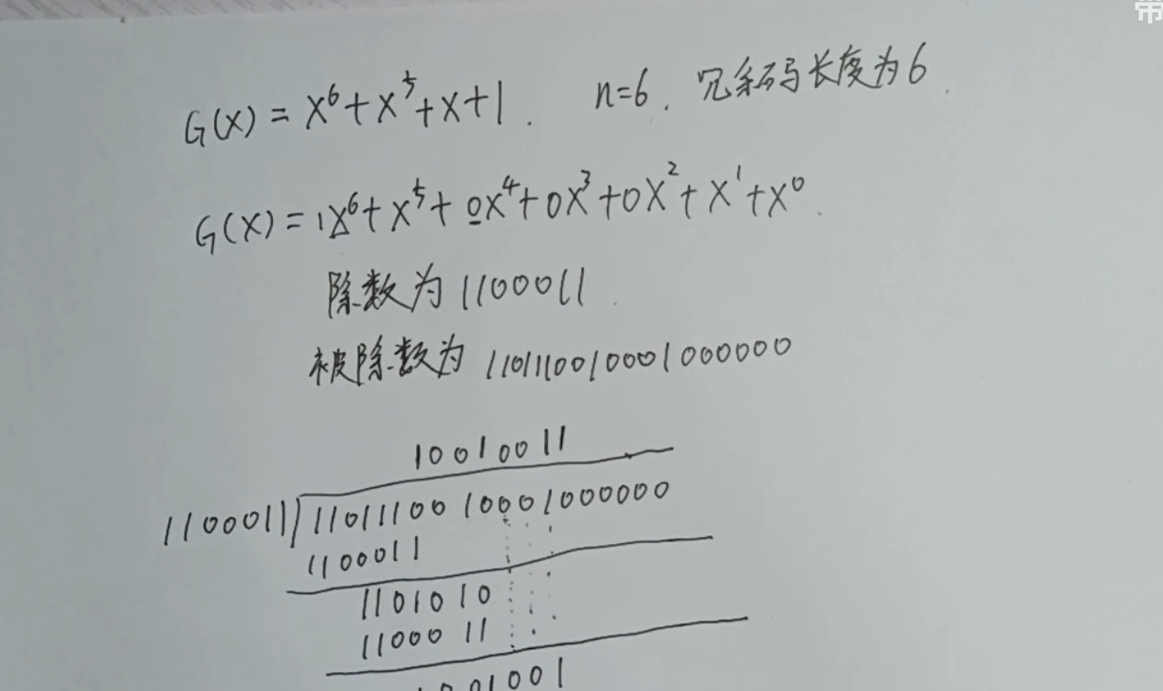 G(X) = X⁶+X⁵+X+1. n=6. 冗余码长度为6.
G(X) = 1X⁶+X⁵+0X⁴+0X³+0X²+X¹+X⁰.
除数为1100011.
被除数为1101110010001000000
10010011
1100011 1101110010001000000
1100011
1101010
1100011
001001